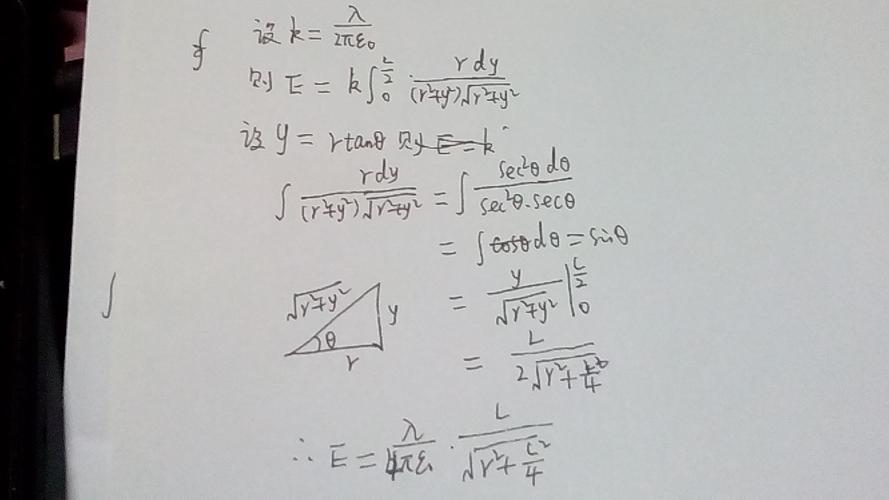 ∮ 设 k = λ/(2πε₀)
则 E = k∫₀^(L/2) r dy/((r²+y²)√(r²+y²))
设 y = r tanθ 则 E = k
∫ r dy/((r²+y²)√(r²+y²)) = ∫ sec²θ dθ/(sec²θ·secθ)
= ∫ cosθ dθ = sinθ
∫
√(r²+y²) y θ r
= y/√(r²+y²) |₀^(L/2)
= L/(2√(r²+L²/4))
∴ E = λ/(4πε₀) · L/√(r²+L²/4)